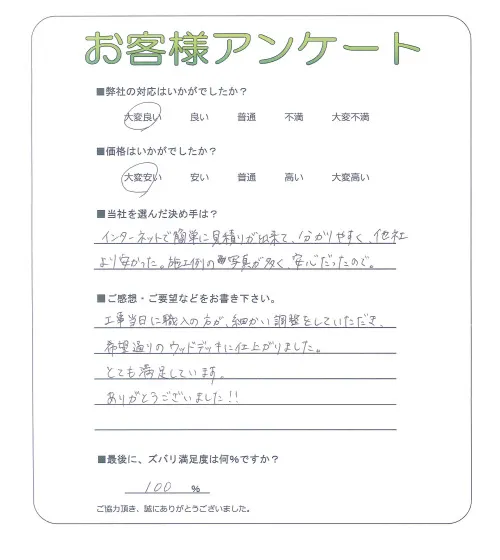 お客様アンケート
■弊社の対応はいかがでしたか？
大変良い 良い 普通 不満 大変不満
■価格はいかがでしたか？
大変安い 安い 普通 高い 大変高い
■当社を選んだ決め手は？
インターネットで簡単に見積りが出来て、分かりやすく、他社
より安かった。施工例の写真が多く、安心だったので。
■ご感想・ご要望などをお書き下さい。
工事当日に職人の方が、細かい調整をしていただき、
希望通りのウッドデッキに仕上がりました。
とても満足しています。
ありがとうございました!!
■最後に、ズバリ満足度は何%ですか？
100 %
ご協力頂き、誠にありがとうございました。